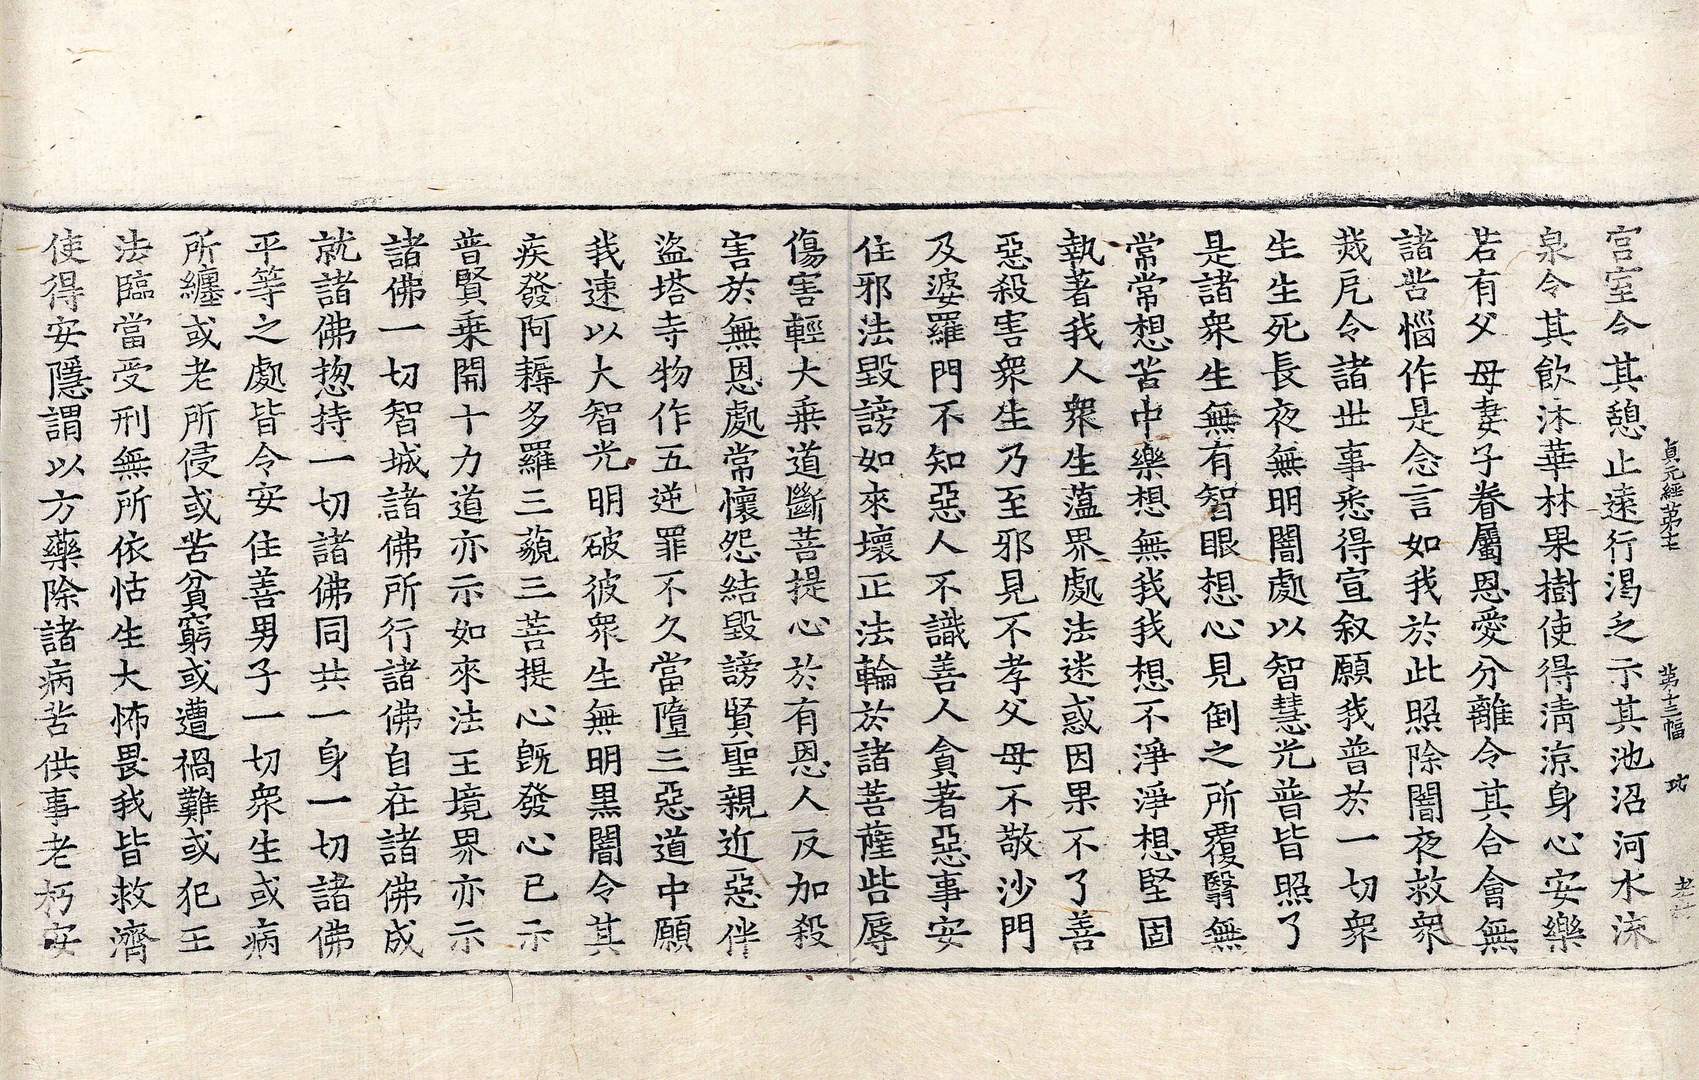 貞元經第十七 第十三幅 功
宫室令其憩止遠行渴乏示其池沼河水流
泉令其飲沐華林果樹使得清凉身心安樂
若有父母妻子眷屬恩愛分離令其合會無
諸苦惱作是念言如我於此照除闇夜救衆
災戹令諸丗事悉得宣叙願我普於一切衆
生生死長夜無明闇處以智慧光普皆照了
是諸衆生無有智眼想心見倒之所覆翳無
常常想苦中樂想無我我想不淨淨想堅固
執著我人衆生蕰界處法迷惑因果不了善
惡殺害衆生乃至邪見不孝父母不敬沙門
及婆羅門不知惡人不識善人貪著惡事安
住邪法毀謗如來壞正法輪於諸菩薩呰辱
傷害輕大乗道斷菩提心於有恩人反加殺
害於無恩處常懷怨結毀謗賢聖親近惡伴
盜塔寺物作五逆罪不久當墮三惡道中願
我速以大智光明破彼衆生無明黒闇令其
疾發阿耨多羅三藐三菩提心旣發心已示
普賢乗開十力道亦示如來法王境界亦示
諸佛一切智城諸佛所行諸佛自在諸佛成
就諸佛惣持一切諸佛同共一身一切諸佛
平等之處皆令安住善男子一切衆生或病
所纏或老所侵或苦貧窮或遭禍難或犯王
法臨當受刑無所依怙生大怖畏我皆救濟
使得安隱謂以方藥除諸病苦供事老朽安